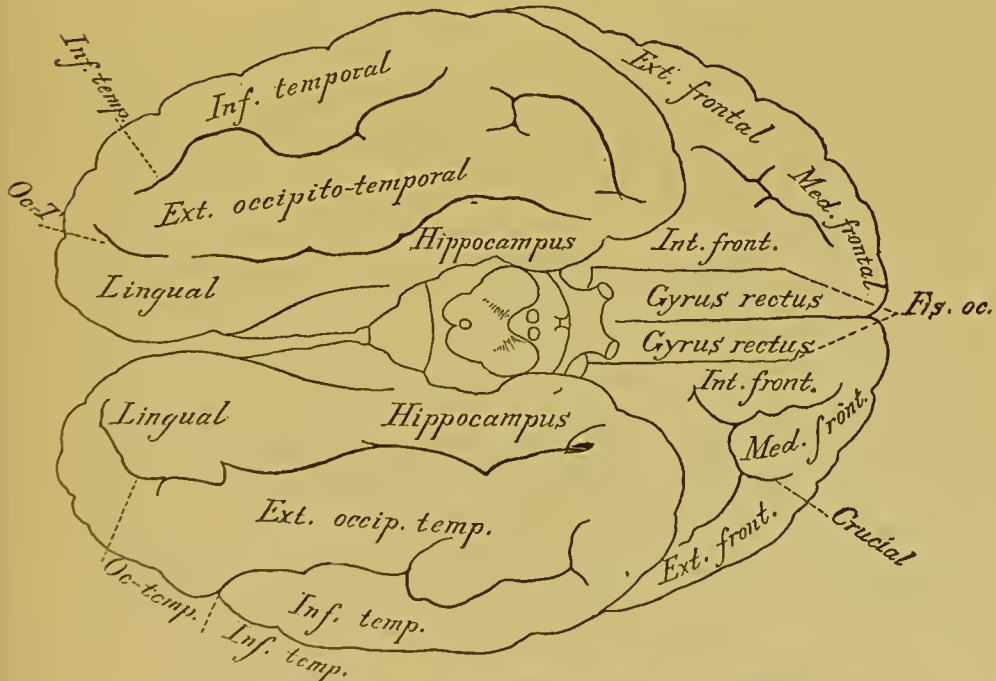 Inf. temp.
Inf. temporal
Ext. frontal
Oc-T.
Ext. occipito-temporal
Med. frontal
Hippocampus
Int. front.
Lingual
Gyrus rectus
Fis. oc.
Gyrus rectus
Int. front.
Lingual
Hippocampus
Med. front.
Ext. occip. temp.
Crucial
Ext. front.
Oc-temp.
Inf. temp.
Inf. temp.